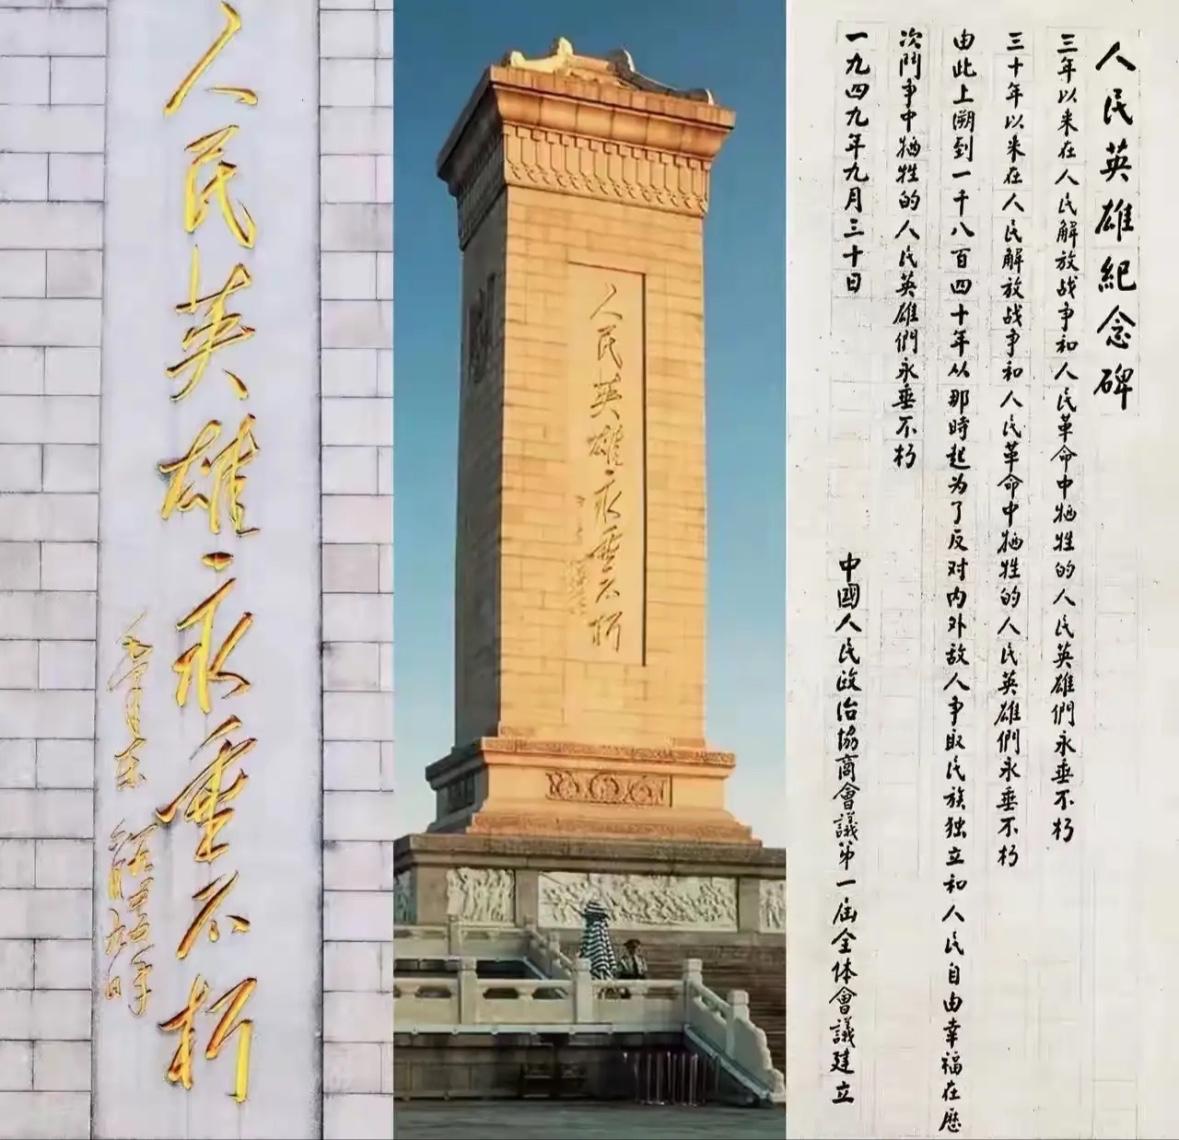 人民英雄永垂不朽
人民英雄永垂不朽
人民英雄紀念碑
三年以来在人民解放战争和人民革命中牺牲的人民英雄們永垂不朽
三十年以来在人民解放战争和人民革命中牺牲的人民英雄們永垂不朽
由此上溯到一千八百四十年从那時起为了反对内外敌人争取民族独立和人民自由幸福在歷
次鬥争中牺牲的人民英雄們永垂不朽
一九四九年九月三十日 中國人民政治協商會議第一届全体會議建立